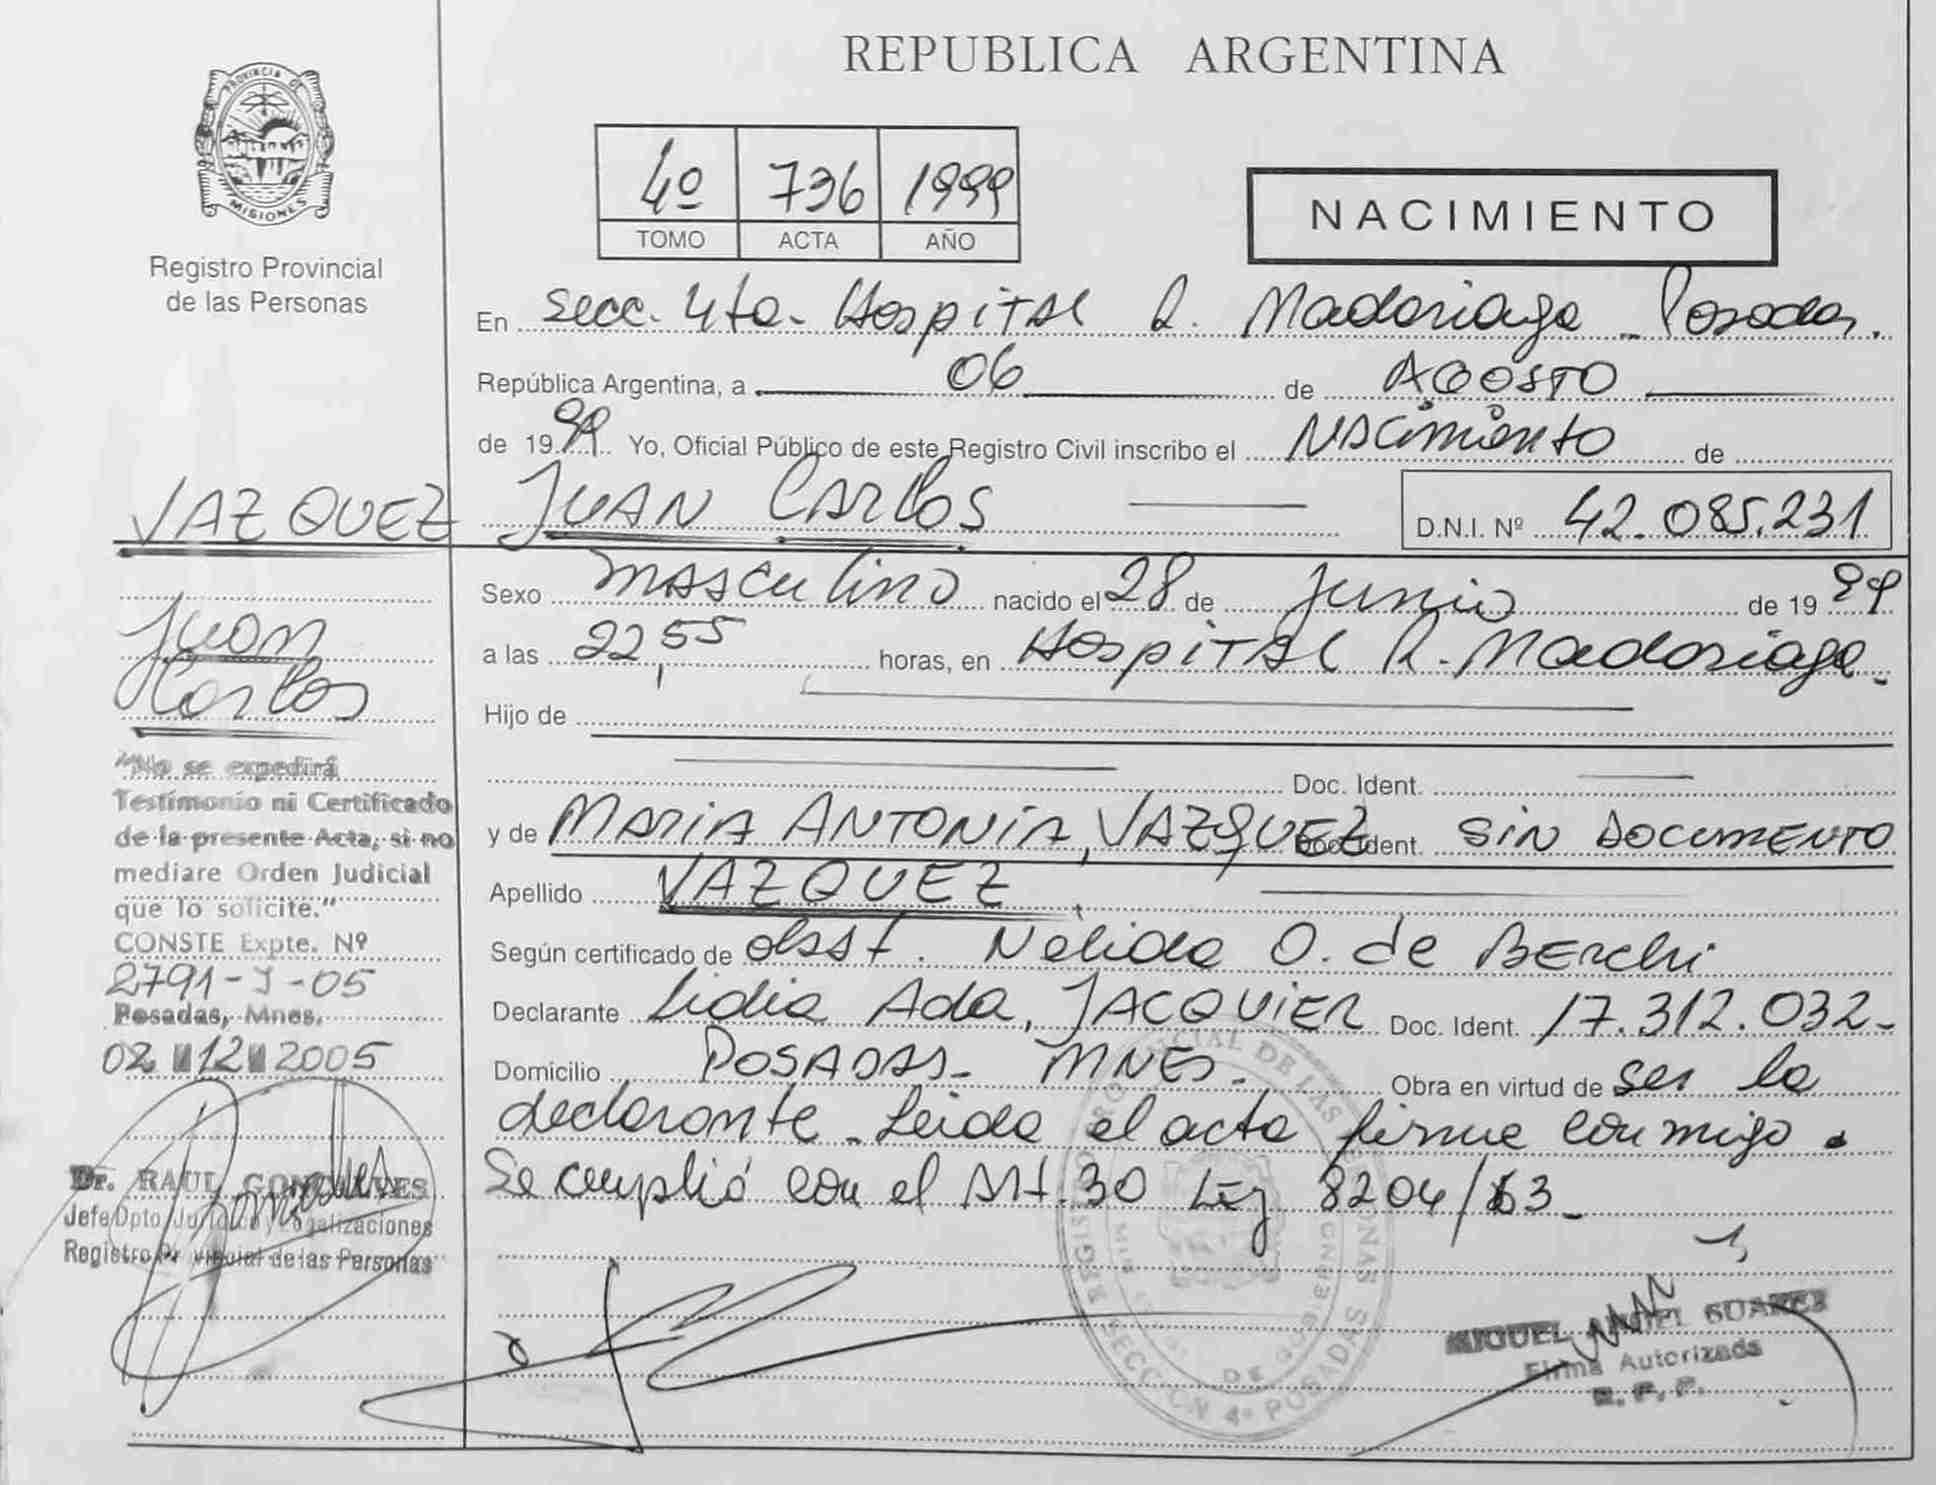 REPUBLICA ARGENTINA
PROVINCIA DE
MISIONES
Registro Provincial
de las Personas
4º 736 1999
TOMO ACTA AÑO
NACIMIENTO
En Secc. 4ta. Hospital R. Madariaga - Posadas.
República Argentina, a 06 de AGOSTO
de 1999 Yo, Oficial Público de este Registro Civil inscribo el Nacimiento de
VAZQUEZ JUAN CARLOS D.N.I. Nº 42.085.231
Juan
Carlos
"No se expedirá
Testimonio ni Certificado
de la presente Acta, si no
mediare Orden Judicial
que lo solicite."
CONSTE Expte. Nº
2791-J-05
Posadas, Mnes.
02 12 2005
Dr. RAUL GONCALVES
Jefe Dpto. Jurídico y Legalizaciones
Registro Provincial de las Personas
Sexo masculino nacido el 28 de Junio de 1999
a las 22,55 horas, en Hospital R. Madariaga.
Hijo de
Doc. Ident.
y de MARIA ANTONIA, VAZQUEZ Doc. Ident. SIN DOCUMENTO
Apellido VAZQUEZ.
Según certificado de obst. Nélida O. de Berchi
Declarante Lidia Ada, JACQUIER Doc. Ident. 17.312.032-
Domicilio POSADAS- MNES. Obra en virtud de ser la
declarante - Leida el acta firma conmigo.
Se cumplió con el Art. 30 Ley 8204/63-
REGISTRO PROVINCIAL DE LAS PERSONAS
SECCION 4º POSADAS
MIGUEL ANGEL SUAREZ
Firma Autorizada
R. P. P.